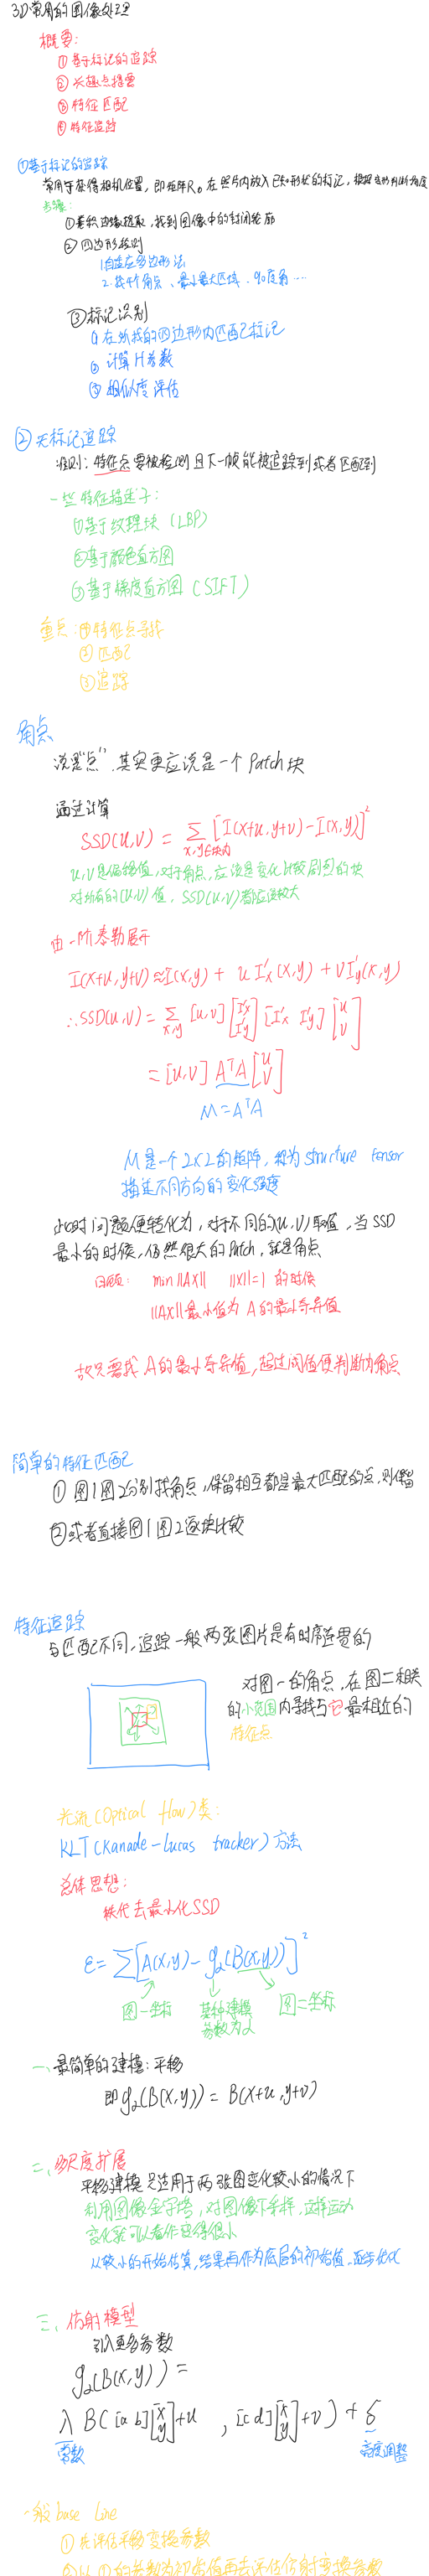 3D常用的图像处理
概要:
① 基于标记的追踪
② 兴趣点提取
③ 特征匹配
④ 特征追踪
①基于标记的追踪
常用于获得相机位置, 即矩阵R。在照片内放入已知形状的标记, 根据变形判断角度
步骤:
①轮廓边缘提取, 找到图像中的封闭轮廓
② 四边形检测
1.自适应多边形法
2. 找4个角点、最小最大区域、90度角...
③标记识别
① 在所找的四边形内匹配标记
② 计算H参数
③ 相似度评估
② 无标记追踪
准则: 特征点要被检测且下一帧能被追踪到或者匹配到
一些特征描述子:
①基于纹理块 (LBP)
②基于颜色直方图
③基于梯度直方图 (SIFT)
重点: ①特征点寻找
② 匹配
③ 追踪
角点
说是"点", 其实更应说是一个Patch块
通过计算
SSD(u,v) = Σ x,y∈块内 [I(x+u,y+v)-I(x,y)]²
u,v是偏移值, 对于角点, 应该是变化比较剧烈的块
对所有的(u,v)值, SSD(u,v)都应该较大
由一阶泰勒展开
I(x+u,y+v)≈I(x,y) + uI'x(x,y) + vI'y(x,y)
∴SSD(u,v) = Σ x,y [u,v] [I'x I'y] [I'x I'y] [u v]
= [u,v] AᵀA [u v]
M=AᵀA
M是一个2x2的矩阵, 称为structure tensor
描述不同方向的变化强度
此时问题便转化为, 对于不同的(u,v)取值, 当SSD
最小的时候, 仍然很大的Patch, 就是角点
min||AX|| ||X||=1 的时候
||AX||最小值为A的最小奇异值
故只需找A的最小奇异值, 超过阈值便判断为角点
简单的特征匹配
① 图1图2分别找角点, 保留相互都是最大匹配的点, 则保留
②或者直接图1图2逐块比较
特征追踪
与匹配不同, 追踪一般两张图片是有时序连贯的
对图一的角点, 在图二相关
的小范围内寻找与它最相近的
特征点
光流(Optical flow)类:
KLT(Kanade-Lucas tracker)方法
总体思想:
迭代去最小化SSD
ε=Σ[A(x,y)-gα(B(x,y))]²
图一坐标 某种建模 图二坐标
参数为α
一、最简单的建模: 平移
即gα(B(x,y)) = B(x+u,y+v)
二、多尺度扩展
平移建模只适用于两张图变化较小的情况下
利用图像金字塔, 对图像下采样, 这样运动
变化就可以看作变得很小
从较小的开始估算, 结果再作为底层的初始值, 逐步优化
三、仿射模型
引入更多参数
gα(B(x,y)) =
λB([a b][x y]+u , [c d][x y]+v) + δ
常数 亮度调整
一般base line
① 先评估平移变换参数
② 以①的参数为初始值再去评估仿射变换参数